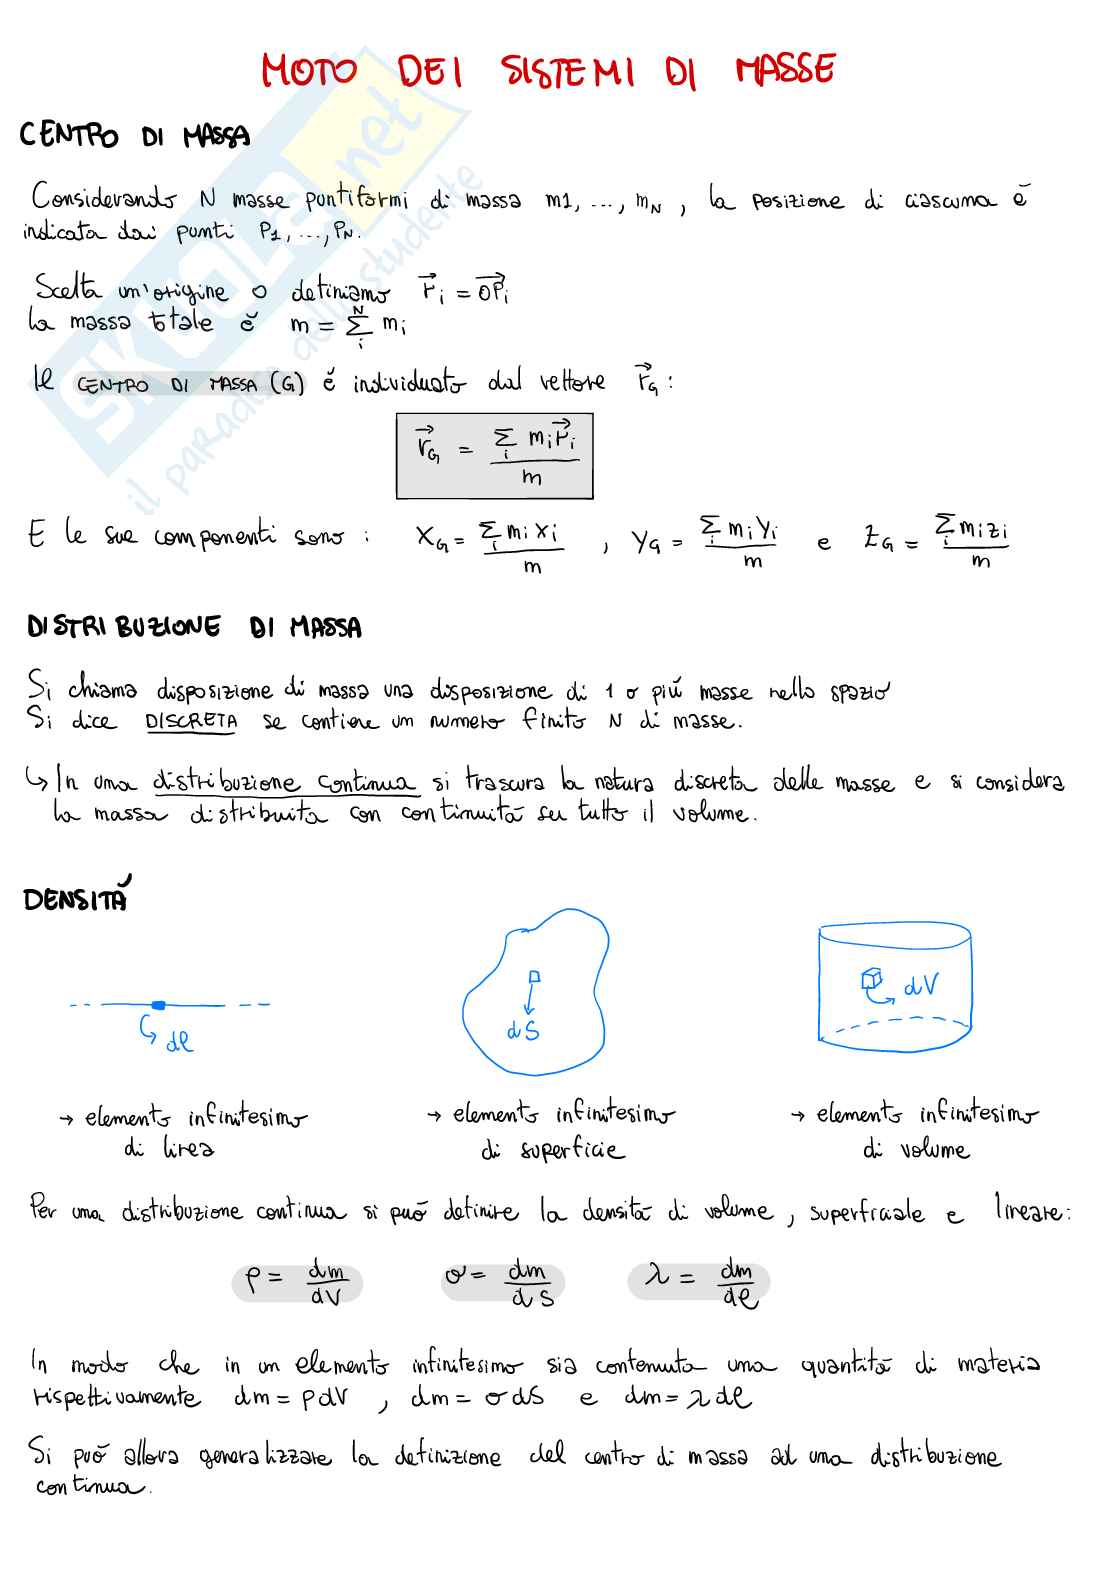 MOTO DEI SISTEMI DI MASSE
CENTRO DI MASSA
Considerando N masse puntiformi di massa m1, ..., m_N , la posizione di ciascuna è
indicata dai punti P1, ..., PN.
Scelta un'origine O definiamo r⃗_i = OP⃗_i
la massa totale è m = Σ_i^N m_i
Il CENTRO DI MASSA (G) è individuato dal vettore r⃗_G :
r⃗_G = Σ_i m_i r⃗_i / m
E le sue componenti sono : X_G = Σ_i m_i x_i / m , Y_G = Σ_i m_i y_i / m e Z_G = Σ_i m_i z_i / m
DISTRIBUZIONE DI MASSA
Si chiama disposizione di massa una disposizione di 1 o più masse nello spazio
Si dice DISCRETA se contiene un numero finito N di masse.
↳ In una distribuzione continua si trascura la natura discreta delle masse e si considera
la massa distribuita con continuità su tutto il volume.
DENSITÁ
dℓ
dS
dV
→ elemento infinitesimo
di linea
→ elemento infinitesimo
di superficie
→ elemento infinitesimo
di volume
Per una distribuzione continua si può definire la densità di volume, superficiale e lineare:
ρ = dm/dV σ = dm/dS λ = dm/dℓ
In modo che in un elemento infinitesimo sia contenuta una quantità di materia
rispettivamente dm = ρdV , dm = σdS e dm = λdℓ
Si può allora generalizzare la definizione del centro di massa ad una distribuzione
continua.
SKUOLA.net
il paradiso dello studente